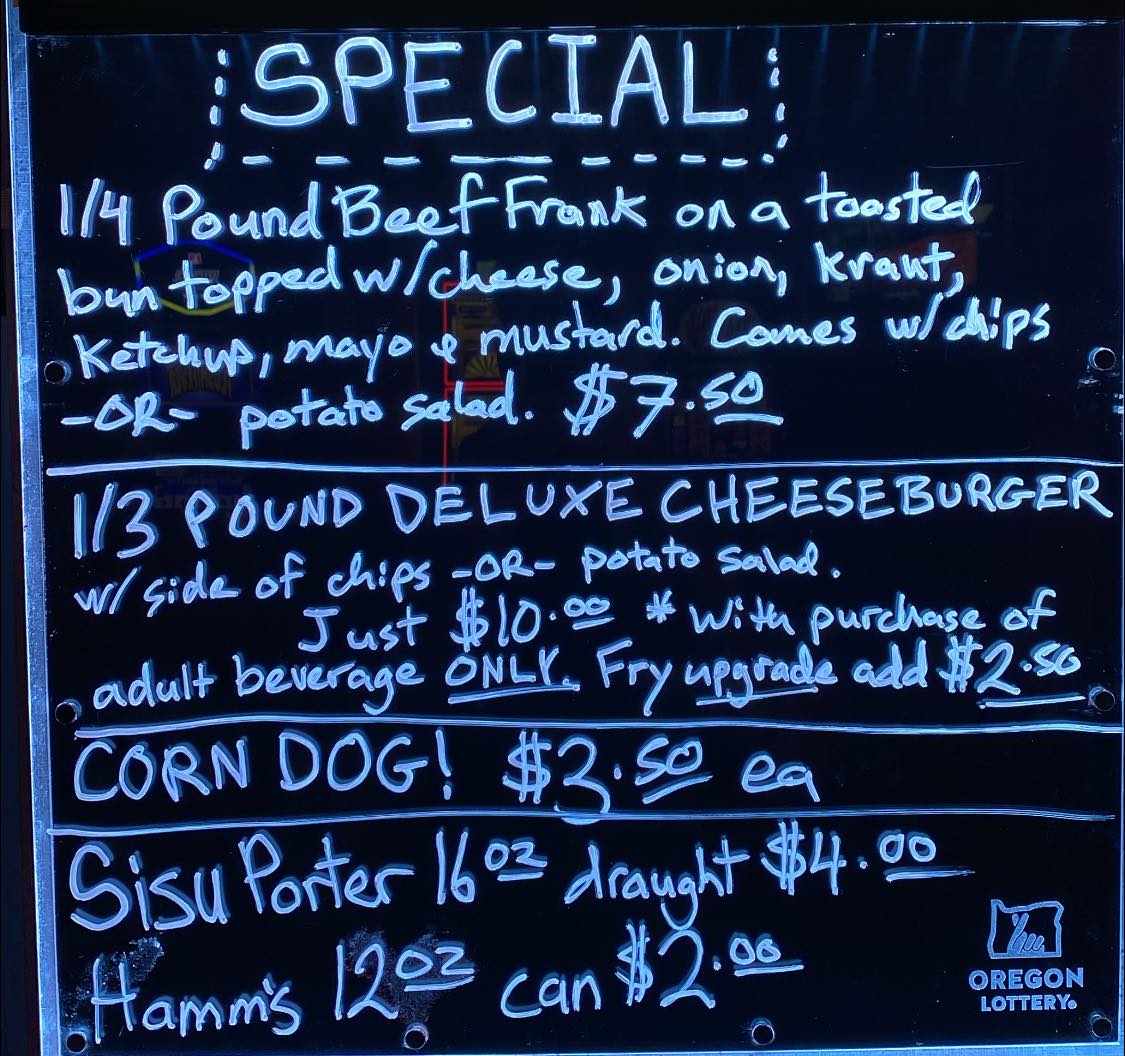 SPECIAL
1/4 Pound Beef Frank on a toasted
bun topped w/cheese, onion, kraut,
ketchup, mayo & mustard. Comes w/ chips
-OR- potato salad. $7.50
1/3 POUND DELUXE CHEESEBURGER
w/ side of chips -OR- potato salad.
Just $10.00 *With purchase of
adult beverage ONLY. Fry upgrade add $2.50
CORN DOG! $3.50 ea
Sisu Porter 16oz draught $4.00
Hamm's 12oz can $2.00
OREGON
LOTTERY